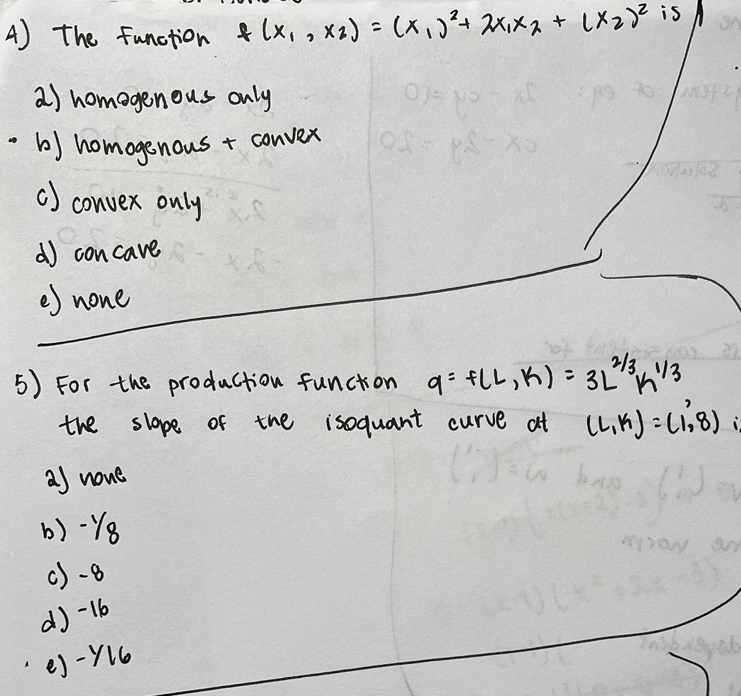 4) The function f(x₁, x₂) = (x₁)² + 2x₁x₂ + (x₂)² is
a) homogenous only
• b) homogenous + convex
c) convex only
d) concave
e) none
5) For the production function q = f(L, K) = 3L^2/3 K^1/3,
the slope of the isoquant curve at (L, K) = (1, 8)
a) none
b) -1/8
c) -8
d) -16
• e) -1/16